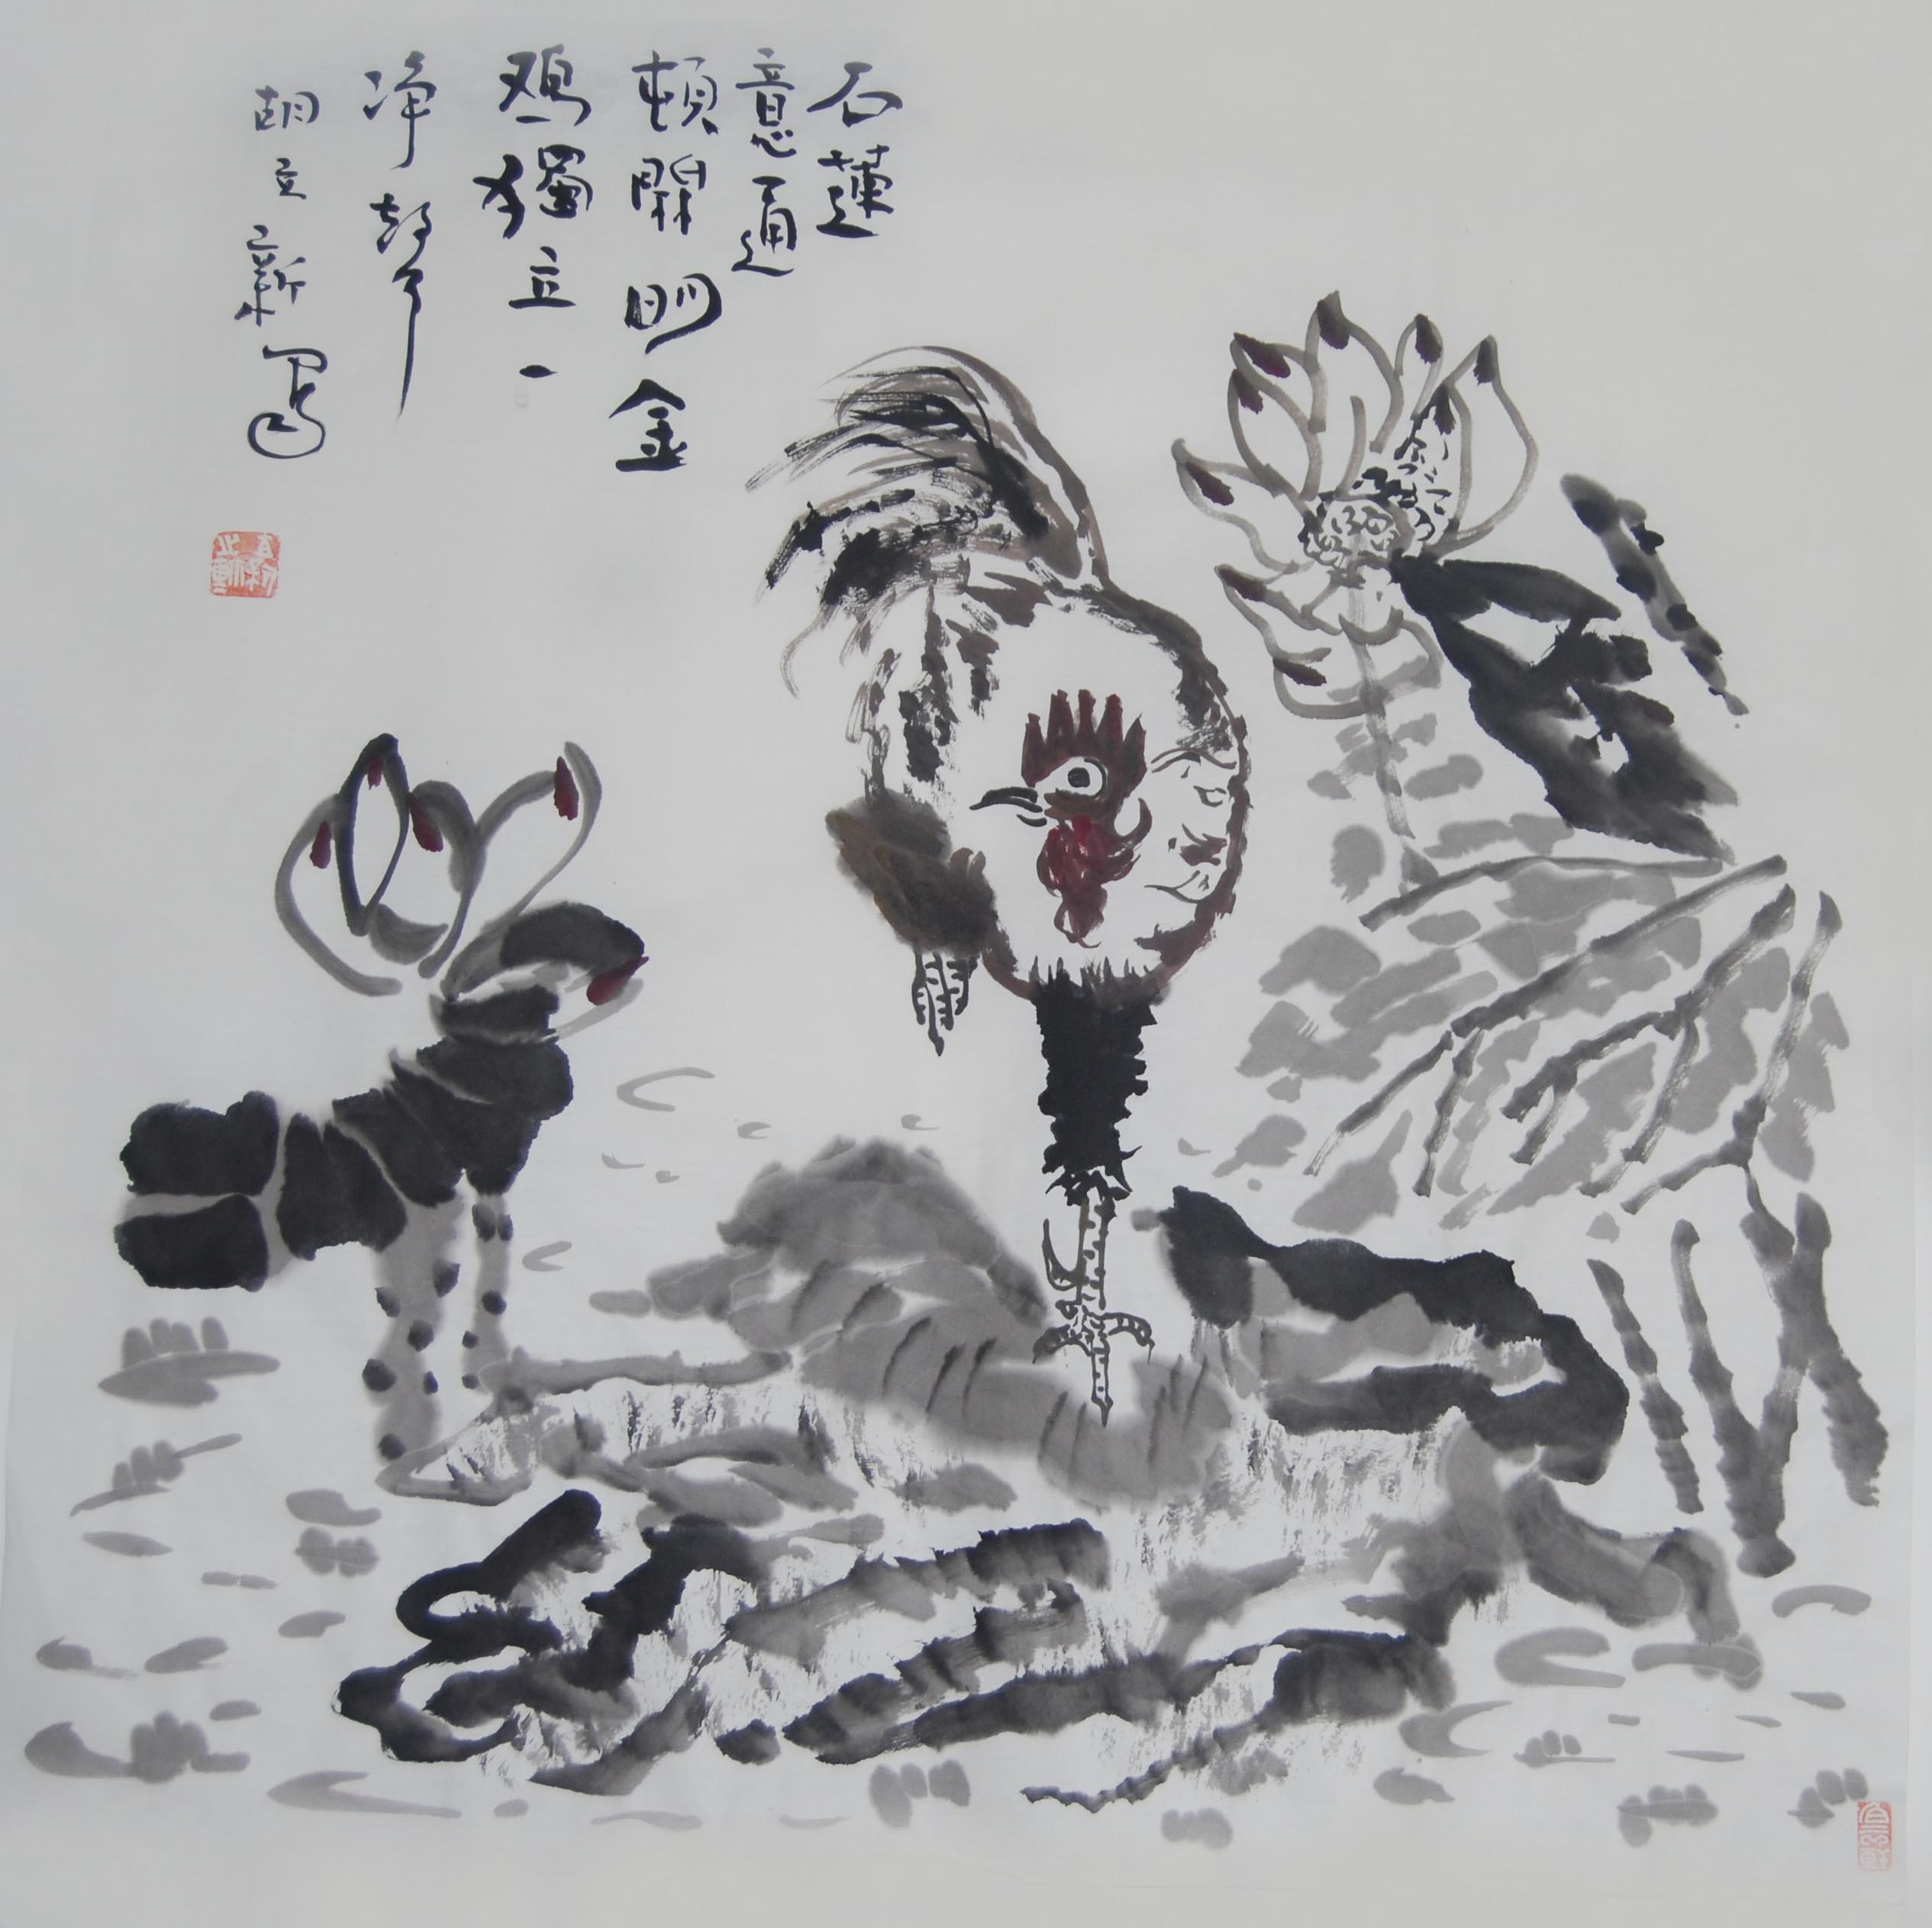 石蓮
意通
頓開明金
鸡獨立一
净
胡立新写